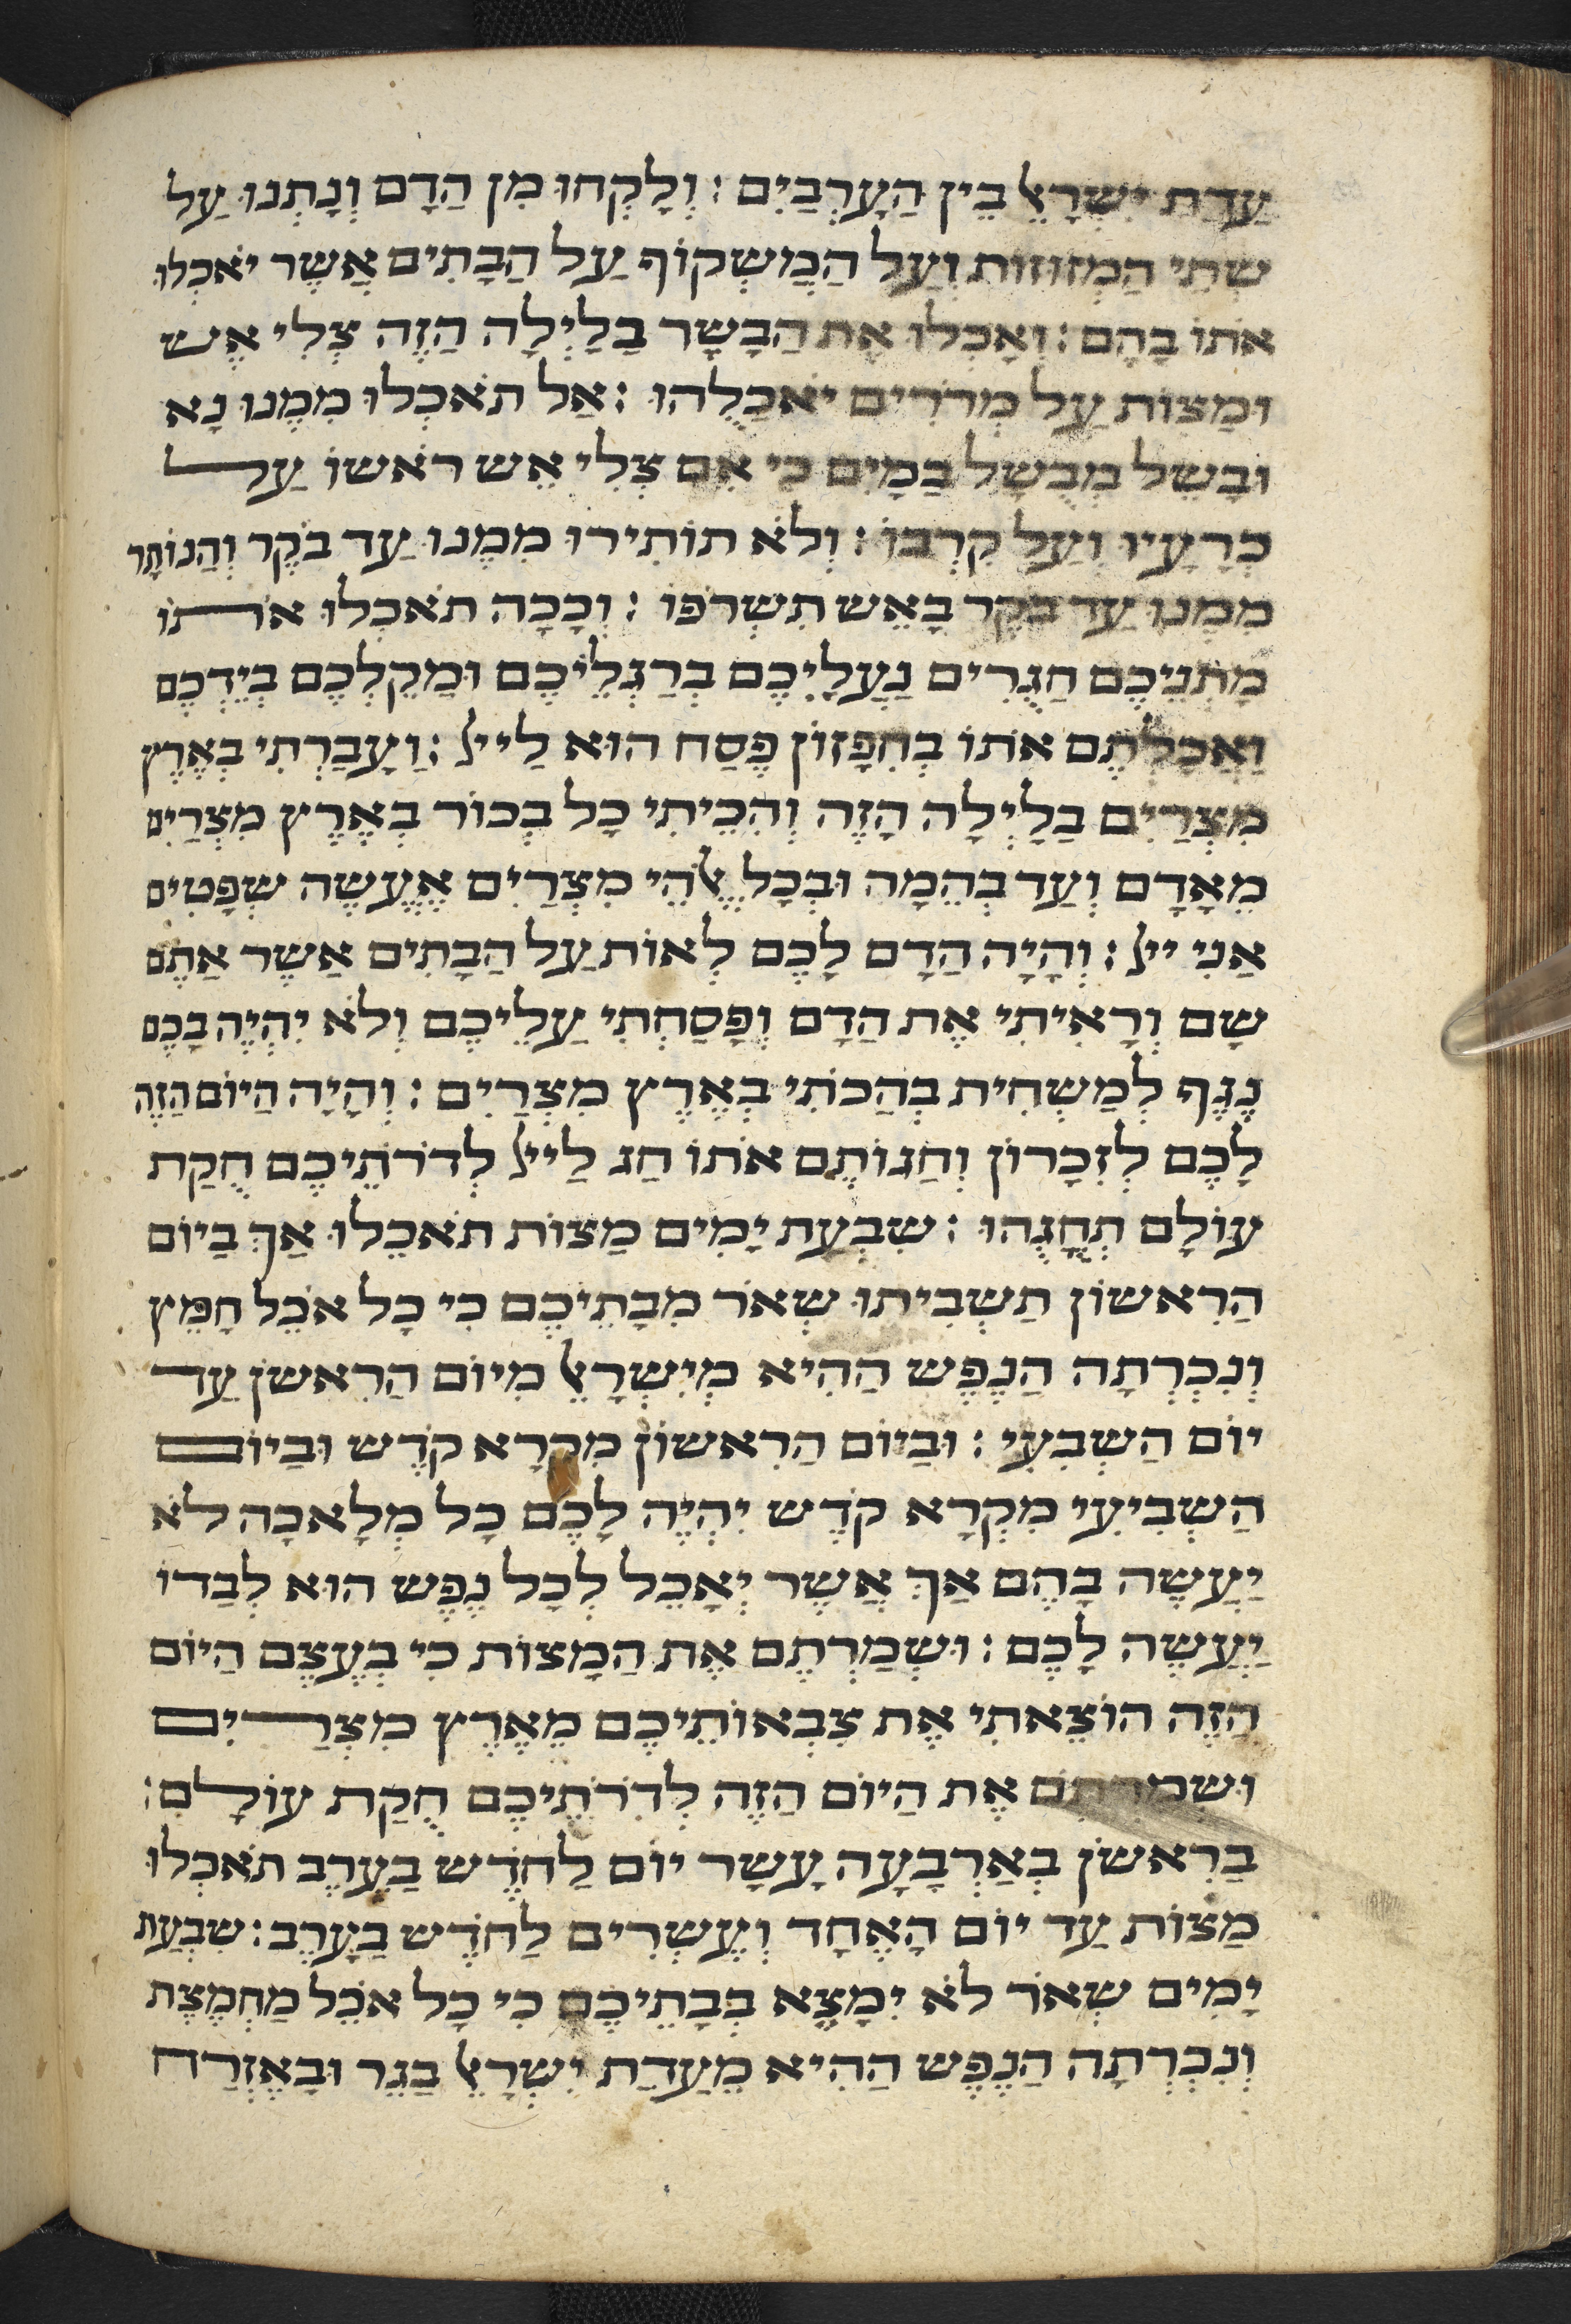 עֲדַת יִשְׂרָאֵל בֵּין הָעַרְבָּיִם : וְלָקְחוּ מִן הַדָם וְנָתְנוּ עַל
שְתֵי הַמְזוּזוֹת וְעַל הַמַשְקוֹף עַל הַבָתִים אֲשֶר יֹאכְלוּ
אֹתוֹ בָהֶם : וְאָכְלוּ אֶת הַבָשָר בַלַיְלָה הַזֶה צְלִי אֵש
וּמַצוֹת עַל מְרֹרִים יֹאכְלֻהוּ : אַל תֹאכְלוּ מִמֶנוּ נָא
וּבָשֵל מְבֻשָל בַמָיִם כִי אִם צְלִי אֵש רֹאשוֹ עַל
כְרָעָיו וְעַל קִרְבוֹ : וְלֹא תוֹתִירוּ מִמֶנוּ עַד בֹקֶר וְהַנוֹתָר
מִמֶנוּ עַד בֹקֶר בָאֵש תִשְרֹפוּ : וְכָכָה תֹאכְלוּ אֹתוֹ
מָתְנֵיכֶם חֲגֻרִים נַעֲלֵיכֶם בְרַגְלֵיכֶם וּמַקֶלְכֶם בְיֶדְכֶם
וַאֲכַלְתֶם אֹתוֹ בְחִפָזוֹן פֶסַח הוּא לַייָ : וְעָבַרְתִי בְאֶרֶץ
מִצְרַיִם בַלַיְלָה הַזֶה וְהִכֵיתִי כָל בְכוֹר בְאֶרֶץ מִצְרַיִם
מֵאָדָם וְעַד בְהֵמָה וּבְכָל אֱלֹהֵי מִצְרַיִם אֶעֱשֶה שְפָטִים
אֲנִי ייָ : וְהָיָה הַדָם לָכֶם לְאוֹת עַל הַבָתִים אֲשֶר אַתֶם
שָם וְרָאִיתִי אֶת הַדָם וְפָסַחְתִי עֲלֵיכֶם וְלֹא יִהְיֶה בָכֶם
נֶגֶף לְמַשְחִית בְהַכֹתִי בְאֶרֶץ מִצְרַיִם : וְהָיָה הַיוֹם הַזֶה
לָכֶם לְזִכָרוֹן וְחַגוֹתֶם אֹתוֹ חַג לַייָ לְדֹרֹתֵיכֶם חֻקַת
עוֹלָם תְחָגֻהוּ : שִבְעַת יָמִים מַצוֹת תֹאכֵלוּ אַךְ בַיוֹם
הָרִאשוֹן תַשְבִיתוּ שְאֹר מִבָתֵיכֶם כִי כָל אֹכֵל חָמֵץ
וְנִכְרְתָה הַנֶפֶש הַהִיא מִיִשְרָאֵל מִיוֹם הָרִאשֹן עַד
יוֹם הַשְבִעִי : וּבַיוֹם הָרִאשוֹן מִקְרָא קֹדֶש וּבַיוֹם
הַשְבִיעִי מִקְרָא קֹדֶש יִהְיֶה לָכֶם כָל מְלָאכָה לֹא
יֵעָשֶה בָהֶם אַךְ אֲשֶר יֵאָכֵל לְכָל נֶפֶש הוּא לְבַדוֹ
יֵעָשֶה לָכֶם : וּשְמַרְתֶם אֶת הַמַצוֹת כִי בְעֶצֶם הַיוֹם
הַזֶה הוֹצֵאתִי אֶת צִבְאוֹתֵיכֶם מֵאֶרֶץ מִצְרַיִם
וּשְמַרְתֶם אֶת הַיוֹם הַזֶה לְדֹרֹתֵיכֶם חֻקַת עוֹלָם :
בָרִאשֹן בְאַרְבָעָה עָשָר יוֹם לַחֹדֶש בָעֶרֶב תֹאכְלוּ
מַצוֹת עַד יוֹם הָאֶחָד וְעֶשְרִים לַחֹדֶש בָעָרֶב : שִבְעַת
יָמִים שְאֹר לֹא יִמָצֵא בְבָתֵיכֶם כִי כָל אֹכֵל מַחְמֶצֶת
וְנִכְרְתָה הַנֶפֶש הַהִיא מֵעֲדַת יִשְרָאֵל בַגֵר וּבָאֶזְרַח